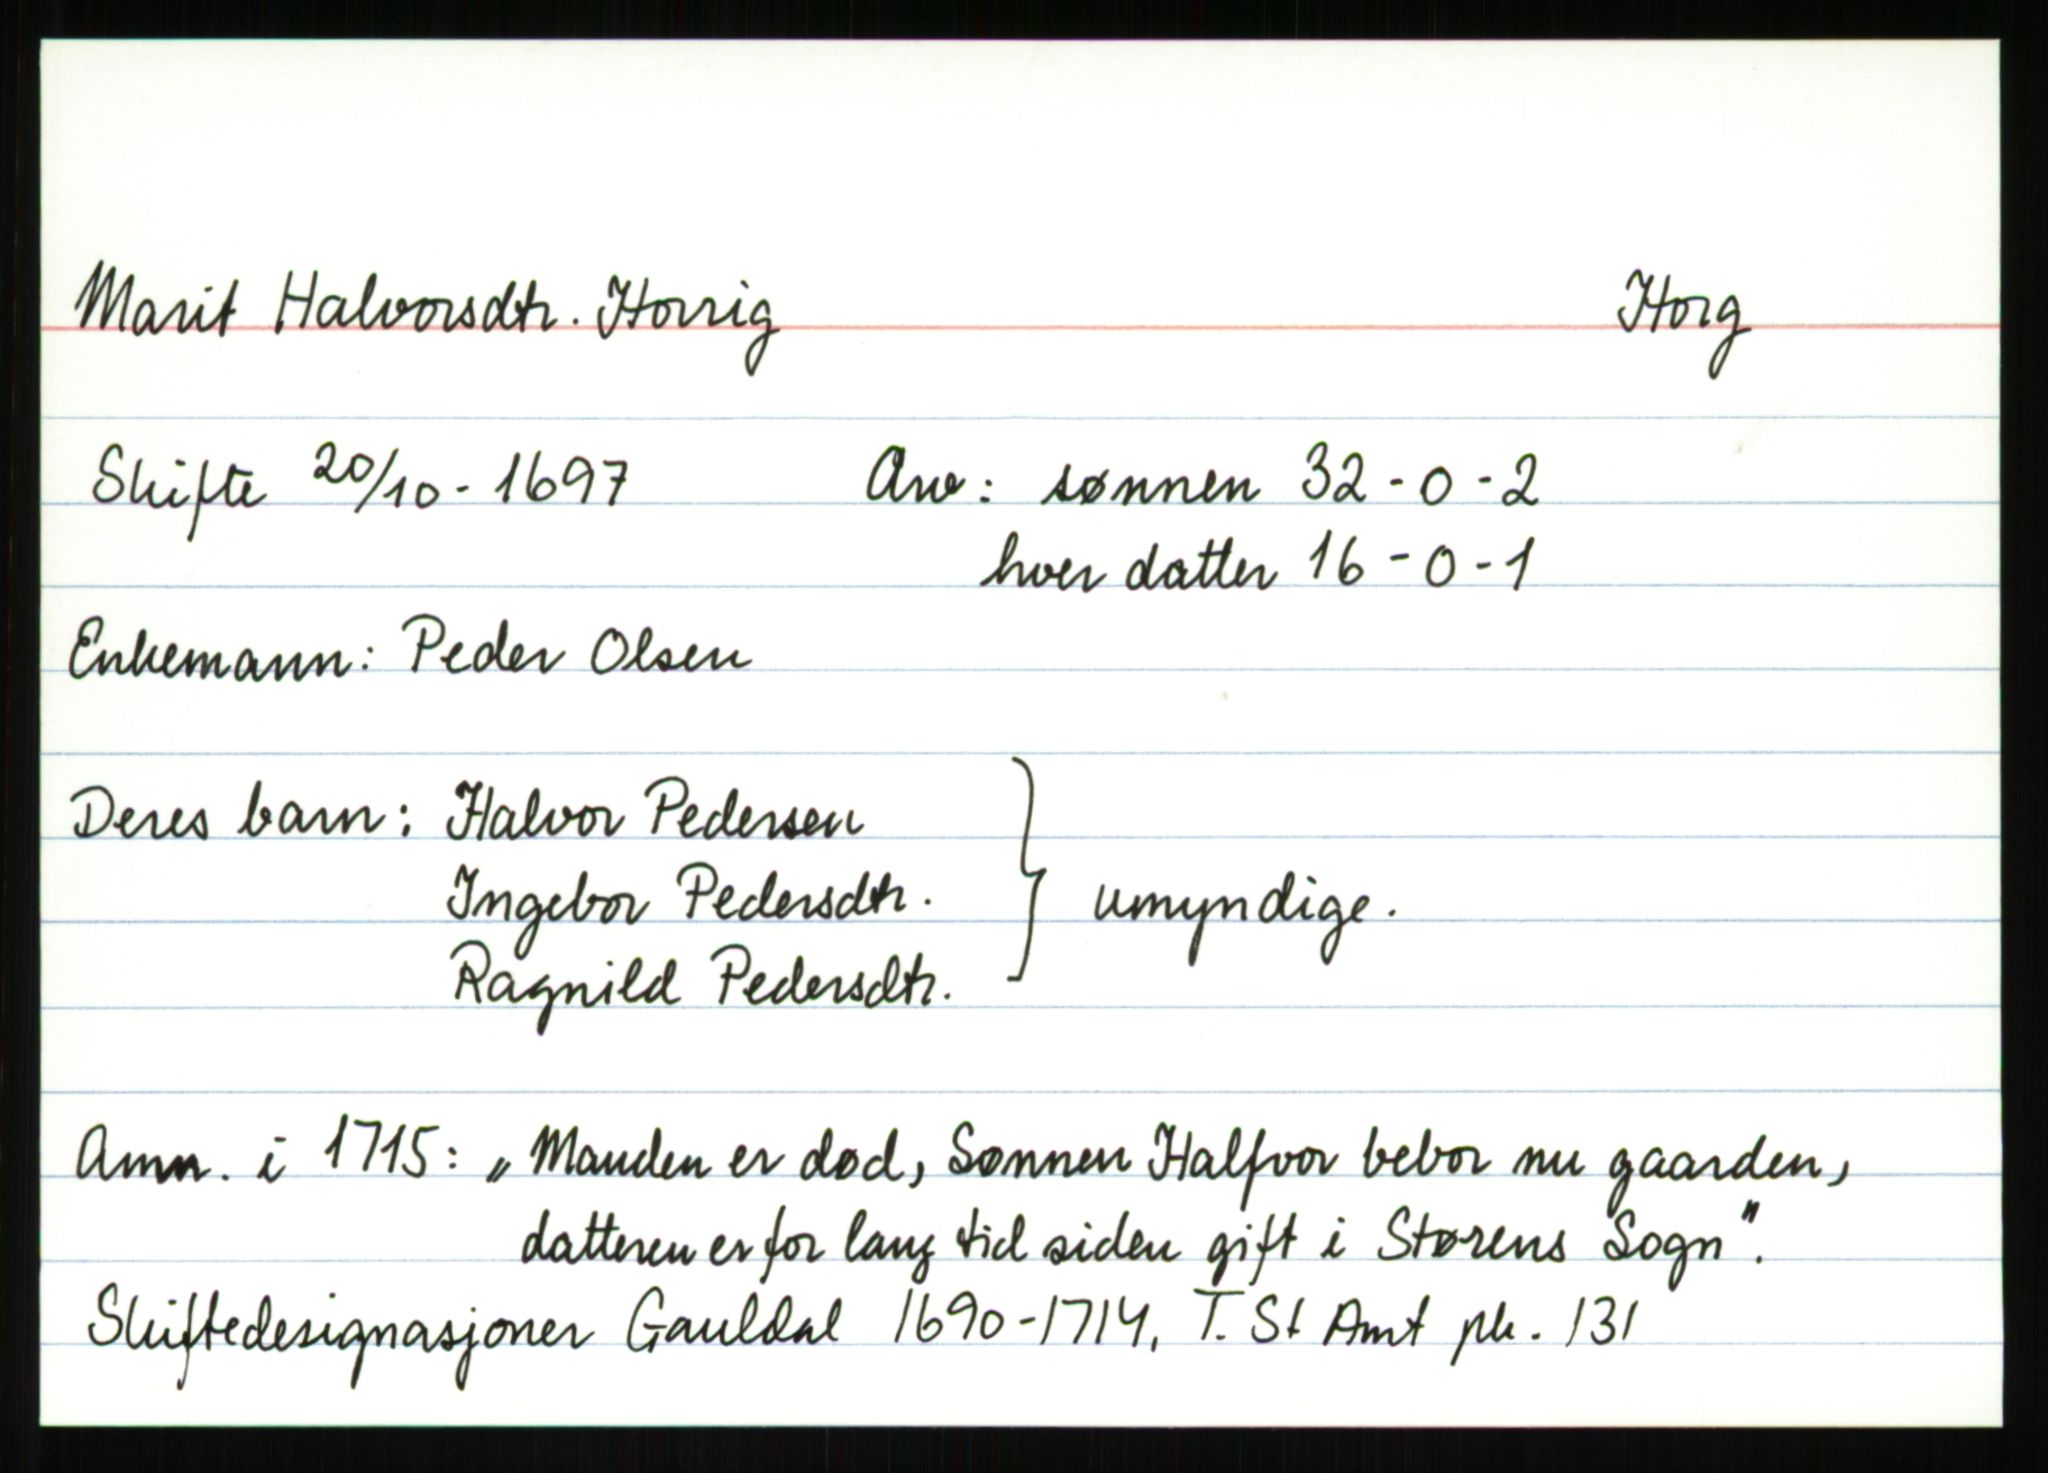 Marit Halvorsdtr. Horrig Horg
Skifte 20/10 - 1697 Arv: sønnen 32 - 0 - 2
hver datter 16 - 0 - 1
Enkemann: Peder Olsen
Deres barn: Halvor Pedersen
Ingebor Pedersdtr. } umyndige.
Ragnild Pedersdtr.
Anm. i 1715: „Manden er død, Sønnen Halfvor bebor nu gaarden,
datteren er for lang tid siden gift i Størens Sogn".
Skiftedesignasjoner Gauldal 1690-1714, T. St Amt pk. 131